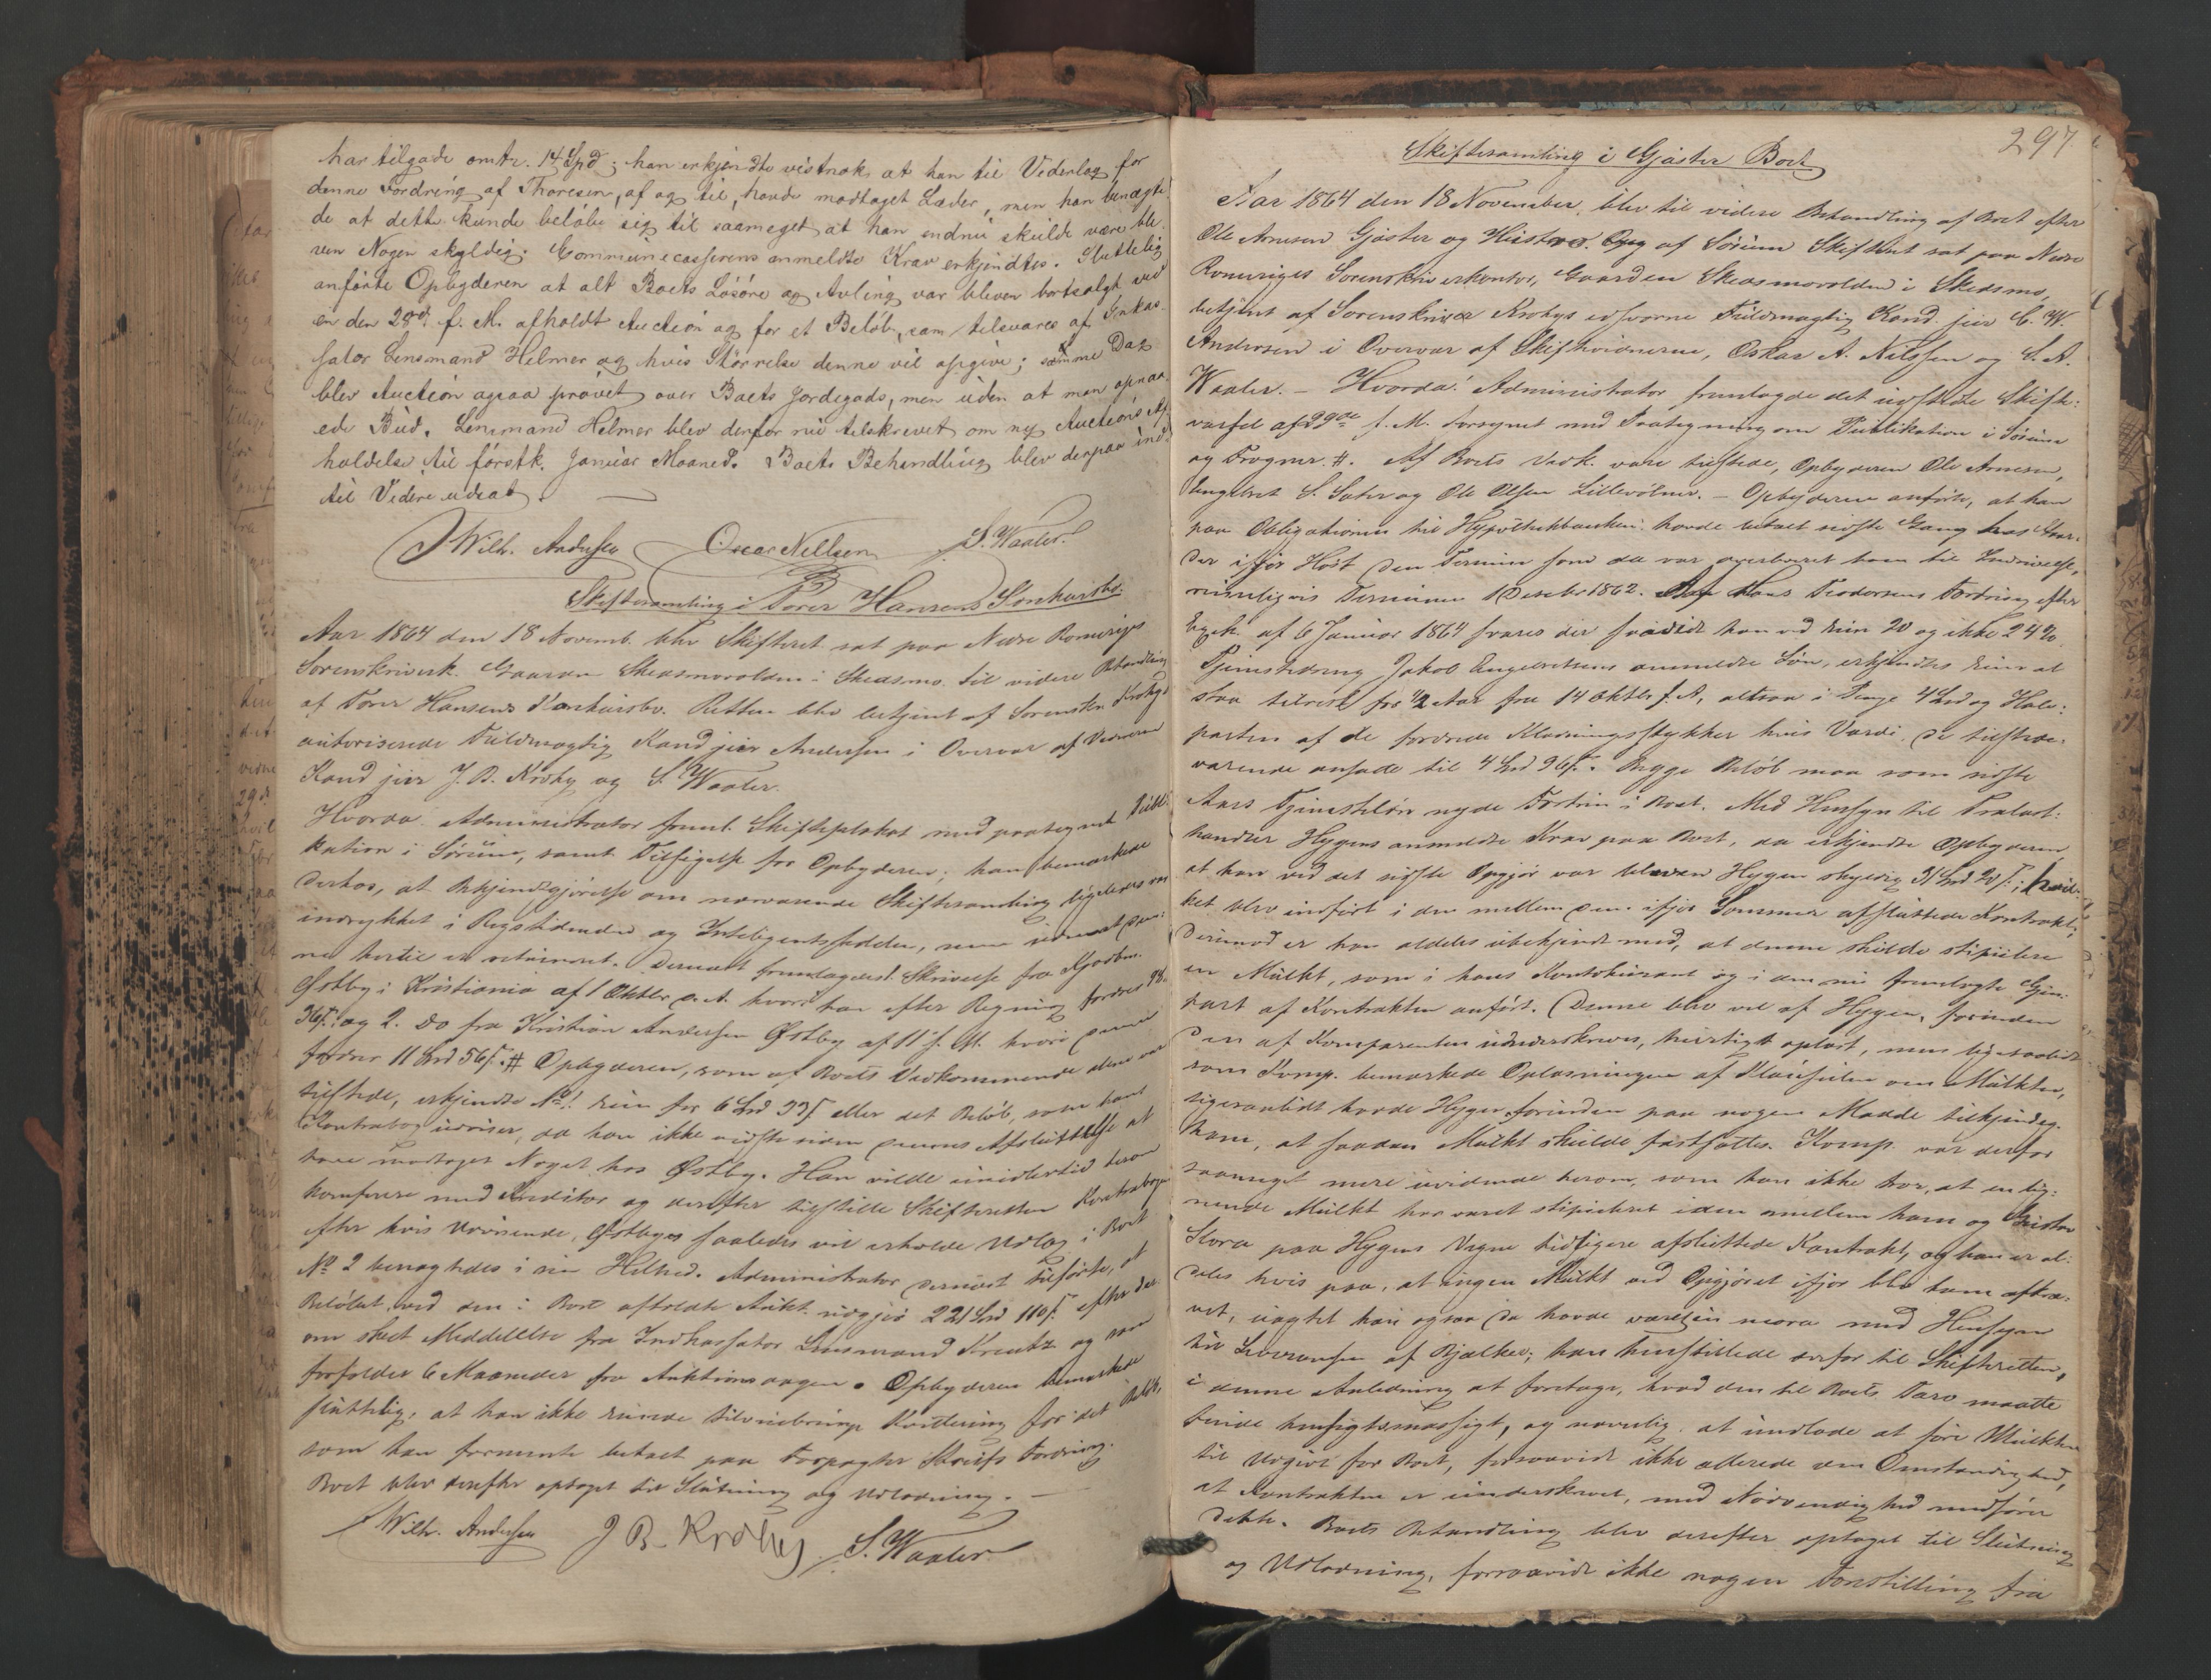 har tilgade omtr. 14 Spd; han erkjendte vistnok at han til Vederlag for
denne Fordring af Thoresen, af og til, havde modtaget Læder, men han benægte-
de at dette kunde beløbe sig til saameget at han endnu skulde være ble-
ven Nogen skyldig. Communecasserens anmeldte Krav erkjendtes. Sluttelig
anførte Opbyderen at alt Boets Løsøre og Avling var bleven bortsolgt ved
en den 28de f. M. afholdt Auction og for et Beløb, som tilsvares af Inkas-
sator Lensmand Helmer og hvis Størrelse denne vil opgive; samme Dag
blev Auction ogsaa prøvet over Boets Jordegods, men uden at man opnaa-
ede Bud. Lensmand Helmer blev derfor nu tilskrevet om ny Auctions Af-
holdelse til førstk. Januar Maaned. Boets Behandling blev derpaa ind-
til Videre udsat. —
Wilh. Andersen Oscar Nilssen S. Waaler.
Skiftesamling i Torer Hansens
Aar 1864 den 18 Novemb. blev Skifteret sat paa Nedre Romeriges
Sorenskriverk. Gaarden Skedsmovolden i Skedsmo til videre Behandling
af Torer Hansens Retten blev betjent af Sorenskr. Krohgs
autoriserede Fuldmægtig Kand jur Andersen i Overvær af Vidnerne
Kand jur J. B. Krohg og S. Waaler.
Hvorda Administrator freml. Skifteplakat med paategnet Publi-
kation i Sørum, samt Tilsigelse for Opbyderen; han bemærkede
derhos, at Bekjendtgjørelse om nærværende Skiftesamling ligeledes var
indrykket i Rigstidende og Inteligentssedden, men
ne hertil ei returneret. Dernæst fremlagdes 1. Skrivelse fra Kjøbm.
Østby i Kristiania af 1 Oktbr d. A. hvori han efter Regning fordres
36 s. og 2. Do fra Kristian Andersen Østby af 11 f. M. hvori denne
fordrer 11 Spd 56 s. # Opbyderen, som af Boets Vedkommende alene var
tilstede, erkjendte No 1. kun for 6 Spd 33 s eller det Beløb, som hans
Kontrabog udviser, da han ikke vidste siden dennes Afsluttelse at
have modtaget Noget hos Østby. Han vilde imidlertid herom
konferere med Kreditor og derefter tilstille Skifteretten Kontrabogen
efter hvis Udvisende, Østbyes saaledes vil erholde Udlæg i Boet
No 2 benægtedes i sin Helhed. Administrator dernæst tilførte, at
Beløbet ved den i Boet afholdte Aukt. udgjør 221 Spd 110 s. efter der
om skeet Meddelelse fra Indkassator Lensmand Kreutz og som
forfalder 6 Maaneder fra Auktionsdagen. Opbyderen bemærkede
sluttelig, at han ikke kunde tilveiebringe Kvittering for det Beløb,
som han formente betalt paa Forpagter Fordring.
Boet blev derefter optaget til Slutning og Udlodning. —
Wilh. Andersen J B. Krohg S. Waaler
297.
Skiftesamling i Gjøster Boet
Aar 1864 den 18 November, blev til videre Behandling af Boet efter
Ole Arnesen Gjøster og Hustroes Opg af Sørum Skifteret sat paa Nedre
Romeriges Sorenskriverkontor, Gaarden Skedsmovolden i Skedsmo,
betjent af Sorenskriver Krohgs edsvorne Fuldmægtig Kand. jur C. W.
Andersen i Overvær af Skiftevidnerne, Oskar A. Nilssen og S. A.
Waaler. — Hvorda: Administrator fremlagde det udstedte Skifte-
varsel af 22de f. M. forsynet med Paategning om Publikation i Sørum
og Frogner. #. Af Boets Vedk. vare tilstede, Opbyderen Ole Arnesen,
Engebret S. Sæter og Ole Olsen Lillevolner. — Opbyderen anførte, at han
paa Obligationen til Hypothekbanken havde betalt sidste Gang hos
der ifjor Høst den Termin som da var overleveret ham til Inddrivelse,
rimeligvis Terminen 1 Decbr 1862. Af Hans Teodorsens Fordring efter
Exek. af 6 Januar 1864 svares der saavidt han ved kun 20 og ikke 24 %.
Tjenestedreng Jakob Engebretsens anmeldte Løn, erkjendtes kun at
staa tilrest for 1/2 Aar fra 14 Oktbr f. A, altsaa i Penge 4 Spd og Halv-
parten af de fordrede Klædningsstykker hvis Værdi, de tilstede-
værende ansaae til 4 Spd 96 s. Begge Beløb maa som sidste
Aars Tjenesteløn nyde Fortrin i Boet. Med Hensyn til Trælast-
handler Hygens anmeldte Krav paa Boet, da erkjendte Opbyderen
at han ved det sidste Opgjør var bleven Hygen skyldig 31 Spd 20 s.; hvil-
ket blev indført i den mellem dem ifjor Sommer afsluttede Kontrakt;
derimod er han aldeles ubekjendt med, at denne skulde stipulere
en Mulkt, som i hans Kontokurant og i den nu fremlagte Gjen-
part af Kontrakten anført. Denne blev vel af Hygen, forinden
den af Komparenten underskreves, hurtigt oplæst, men ligesaalidt
som Komp. bemærkede Oplæsningen af Klausulen om Mulkten,
ligesaalidt havde Hygen forinden paa nogen Maade tilkjendeg.
ham, at saadan Mulkt skulde fastsættes. Komp. var derfor
saameget mere uvidende herom, som han ikke tror, at en lig-
nende Mulkt har været stipuleret i den mellem ham og
paa Hygens Vegne tidligere afsluttede Kontrakt, og han er al-
deles vis paa, at ingen Mulkt ved Opgjøret ifjor blev ham affor-
vet, uagtet han ogsaa da havde været in mora med Hensyn
til Leverancen af Bjælker; han henstillede derfor til Skifteretten,
i denne Anledning at foretage, hvad den til Boets Tarv maatte
finde hensigtsmæssigt, og navnlig at undlade at føre Mulkten
til Udgivt for Boet, forsaavidt ikke allerede den Omstændighed,
at Kontrakten er underskrevet, med Nødvendighed medfører
dette. Boets Behandling blev derefter optaget til Slutning
og Udlodning, forsaavidt ikke nogen Forestilling fra